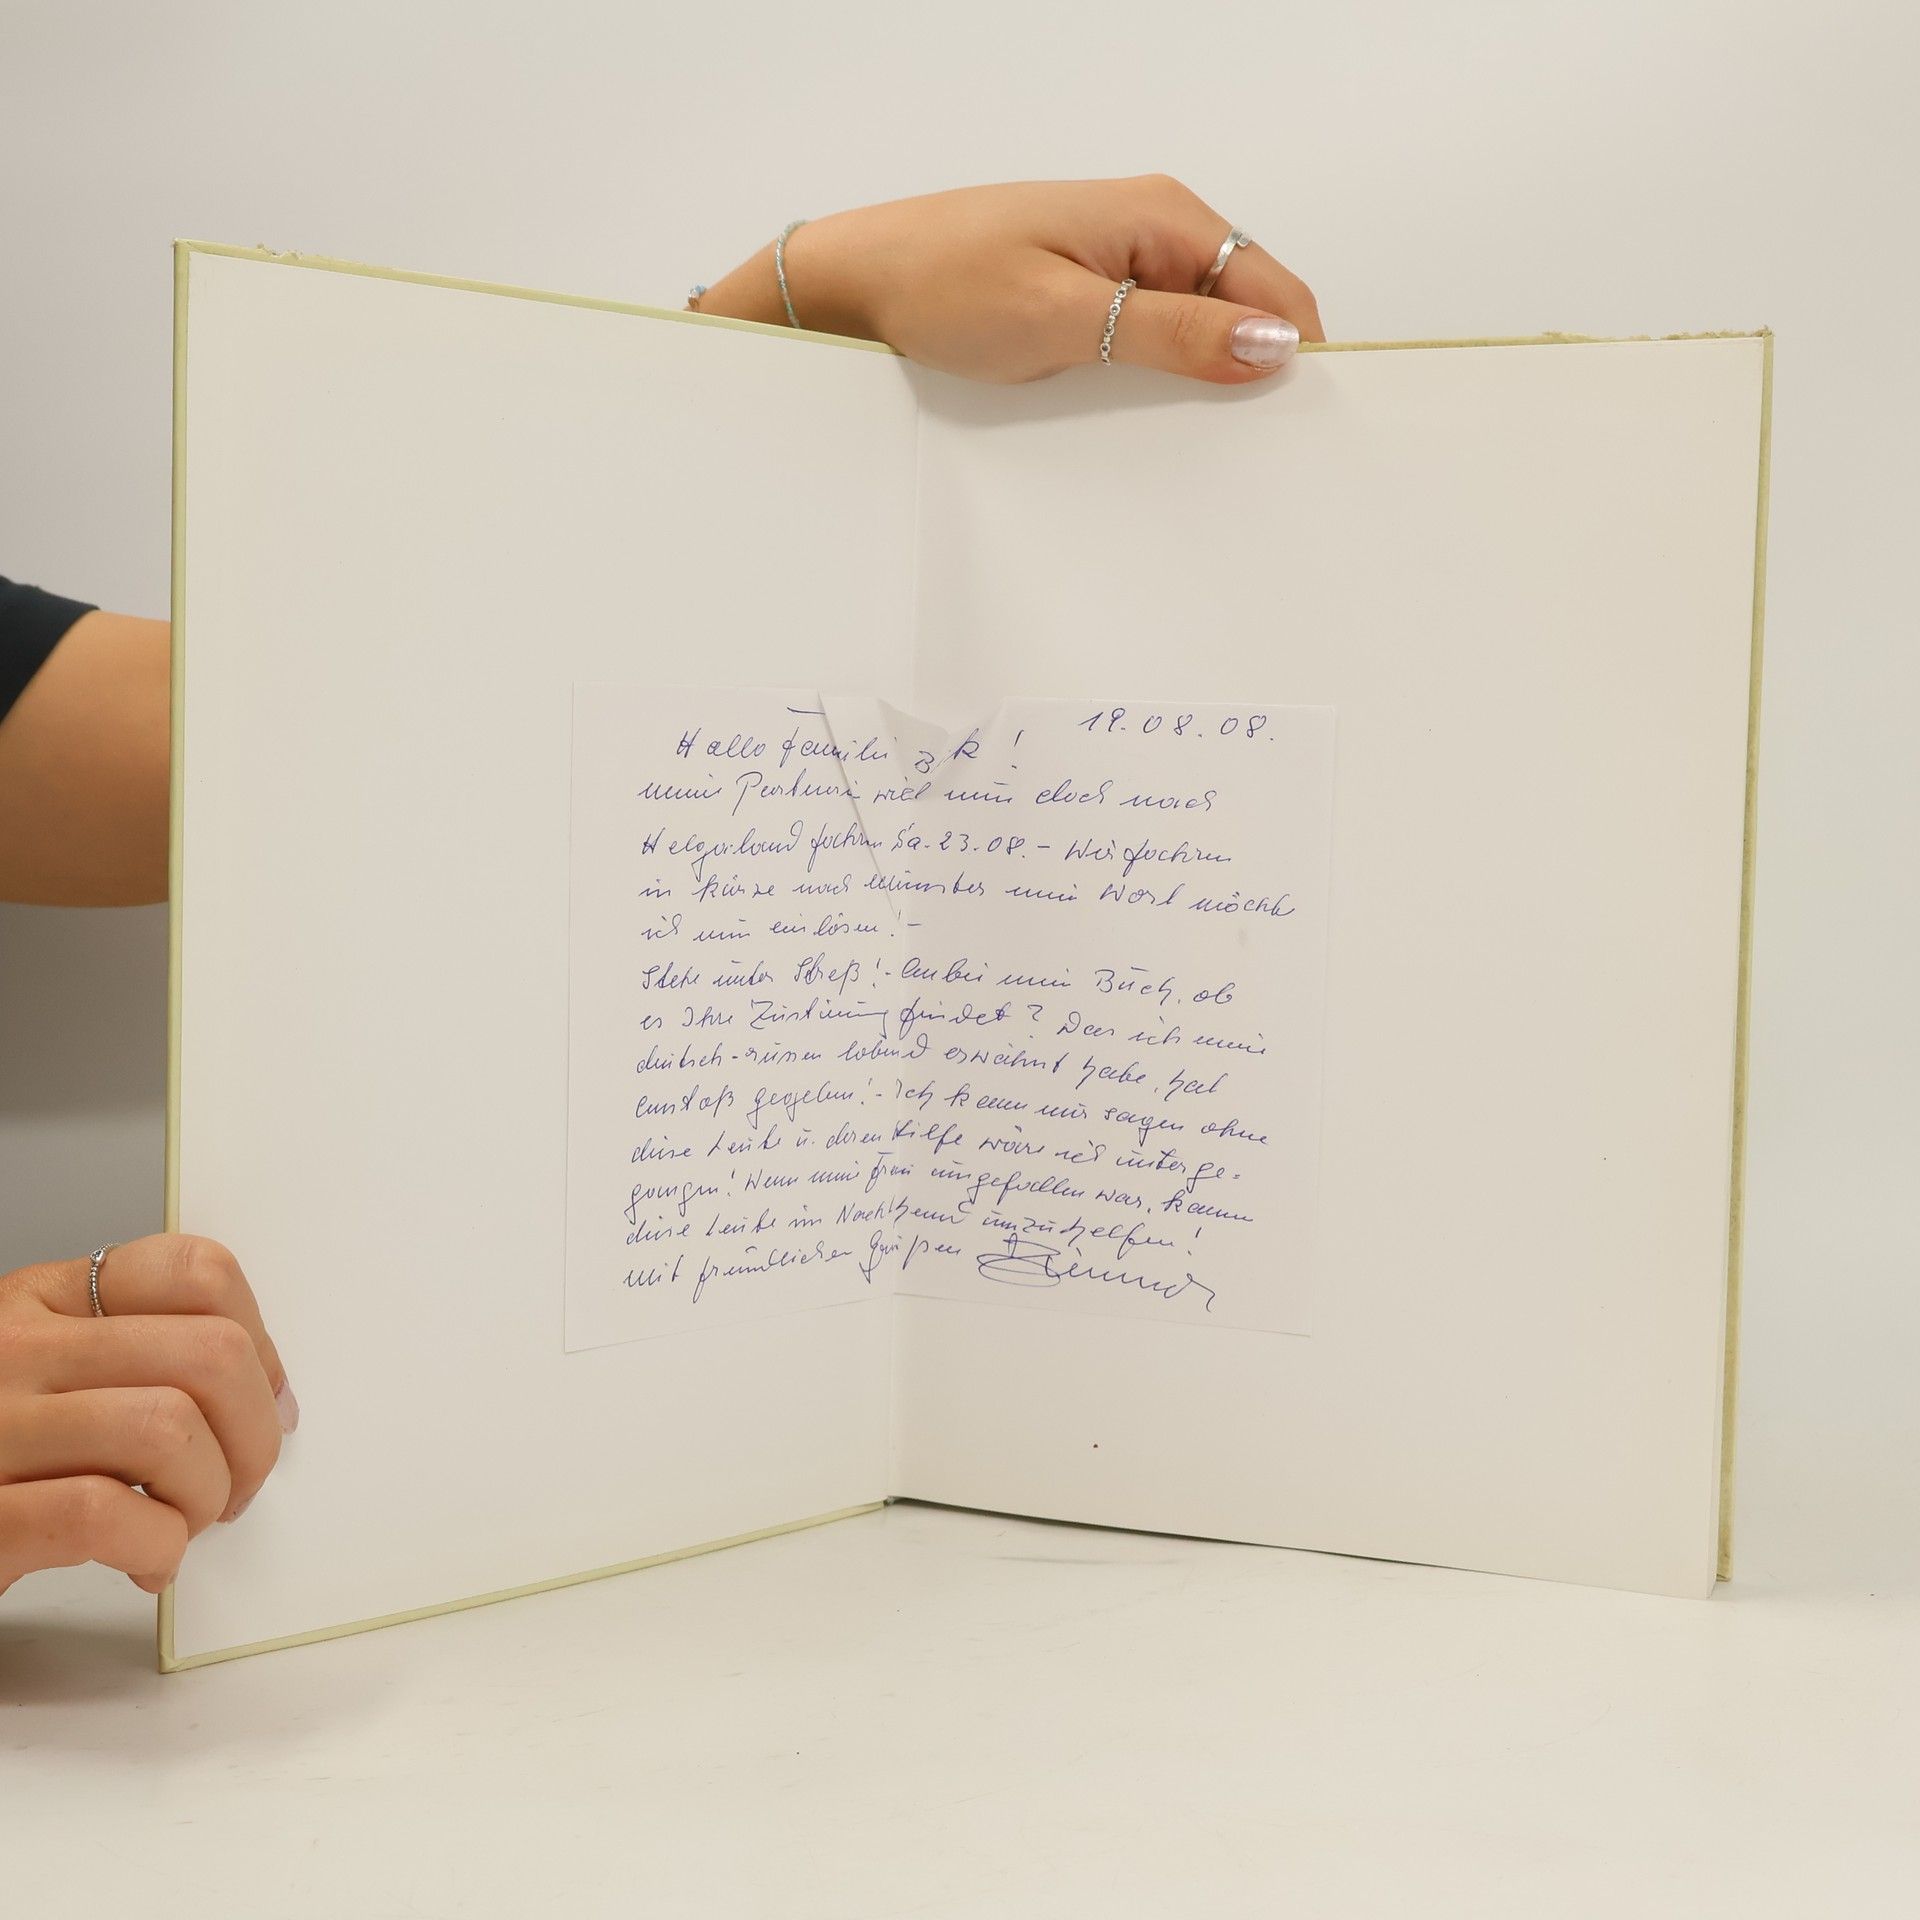 19.08.08.
Hallo Familie B k !
meine Partnerin will nun doch nach
Helgoland fahren Sa. 23.08. - Wir fahren
in kürze nach Münster mein Wort möchte
ich nun einlösen! -
Stehe unter Streß! - Anbei mein Buch, ob
es Ihre Zustimung findet? Das ich meine
deutsch-russen lobend erwähnt habe, hat
anstoß gegeben! - Ich kann nur sagen ohne
diese Leute u. deren Hilfe wäre ich unterge-
gangen! Wenn meine Frau umgefallen war, kamen
diese Leute im Nachthemd um zu helfen!
mit freundlichen Grüßen